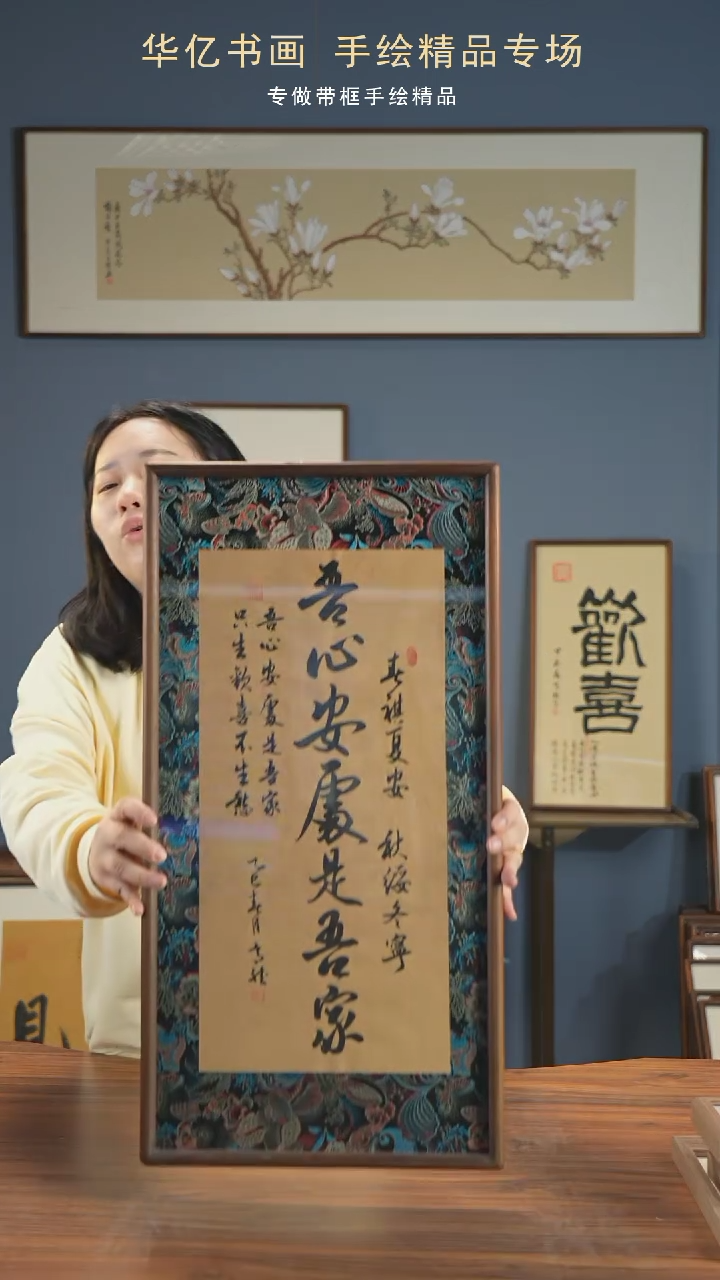 华亿书画 手绘精品专场
专做带框手绘精品
春祺夏安 秋绥冬寧
吾心安處是吾家
吾心安處是吾家
只生歡喜不生愁
乙巳春月
歡喜